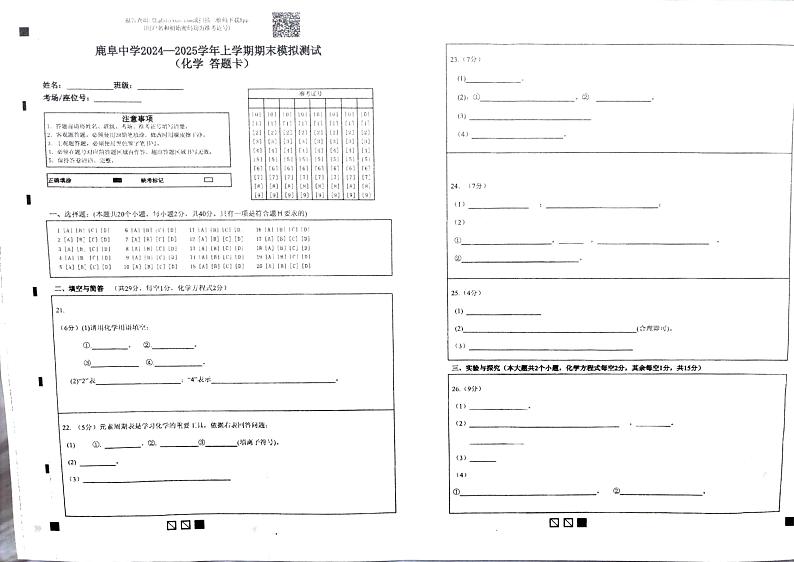 鹿阜中学2024—2025学年上学期期末模拟测试
（化学 答题卡）
姓名：____________班级：____________
考场/座位号：____________
准考证号
注意事项
1．答题前请将姓名、班级、考场、准考证号填写清楚。
2．客观题答题，必须使用2B铅笔填涂，修改时用橡皮擦干净。
3．主观题答题，必须使用黑色签字笔书写。
4．必须在题号对应的答题区域内作答，超出答题区域书写无效。
5．保持答卷清洁、完整。
正确填涂 缺考标记
[0] [0] [0] [0] [0] [0] [0] [0]
[1] [1] [1] [1] [1] [1] [1] [1]
[2] [2] [2] [2] [2] [2] [2] [2]
[3] [3] [3] [3] [3] [3] [3] [3]
[4] [4] [4] [4] [4] [4] [4] [4]
[5] [5] [5] [5] [5] [5] [5] [5]
[6] [6] [6] [6] [6] [6] [6] [6]
[7] [7] [7] [7] [7] [7] [7] [7]
[8] [8] [8] [8] [8] [8] [8] [8]
[9] [9] [9] [9] [9] [9] [9] [9]
一、选择题：(本题共20个小题，每小题2分，共40分，只有一项是符合题目要求的)
1 [A] [B] [C] [D] 6 [A] [B] [C] [D] 11 [A] [B] [C] [D] 16 [A] [B] [C] [D]
2 [A] [B] [C] [D] 7 [A] [B] [C] [D] 12 [A] [B] [C] [D] 17 [A] [B] [C] [D]
3 [A] [B] [C] [D] 8 [A] [B] [C] [D] 13 [A] [B] [C] [D] 18 [A] [B] [C] [D]
4 [A] [B] [C] [D] 9 [A] [B] [C] [D] 14 [A] [B] [C] [D] 19 [A] [B] [C] [D]
5 [A] [B] [C] [D] 10 [A] [B] [C] [D] 15 [A] [B] [C] [D] 20 [A] [B] [C] [D]
二、填空与简答 （共29分，每空1分，化学方程式2分）
21.
(6分) (1)请用化学用语填空：
①________， ②________。
③________ ④________。
(2)“2”表____________；“4”表示____________。
22. （5分）元素周期表是学习化学的重要工具，依据右表回答问题：
(1) ①. ________，②. ________③________(填离子符号)。
(2) ________。
(3) ____________
23.（7分）
(1)____________。
(2)：①____________， ② ____________。
(3) ____________
(4) ____________。
24. （7分）
(1) ____________ ；____________；
(2)
①____________，____ ，____________ 。
②____________。
25.（4分）
(1) ____________
(2)____________(合理即可)。
(3) ____________
三、实验与探究（本大题共2个小题，化学方程式每空2分，其余每空1分，共15分）
26.（9分）
(1) ____________。
(2) ____________ ，________。
________
(3) ______
(4)
①____________。 ②____________。